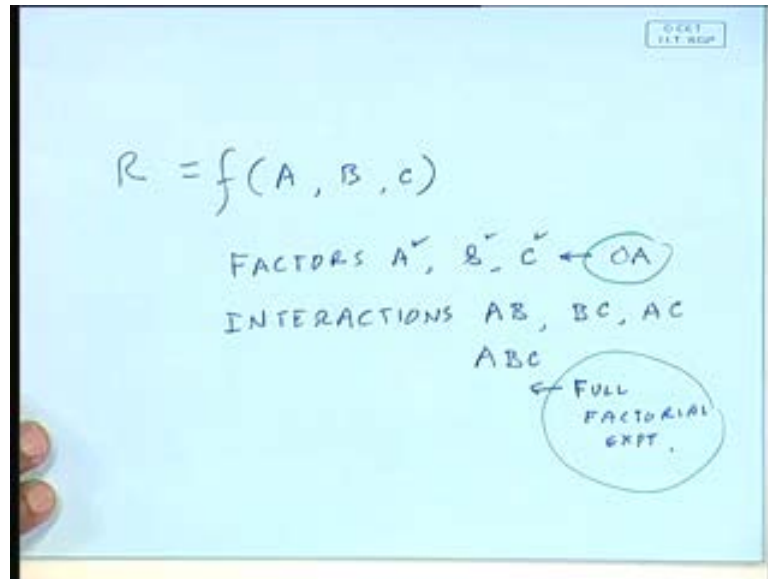 R = f(A, B, C)
FACTORS A✓, B✓, C✓ ← OA
INTERACTIONS AB, BC, AC
ABC
← FULL
FACTORIAL
EXPT.